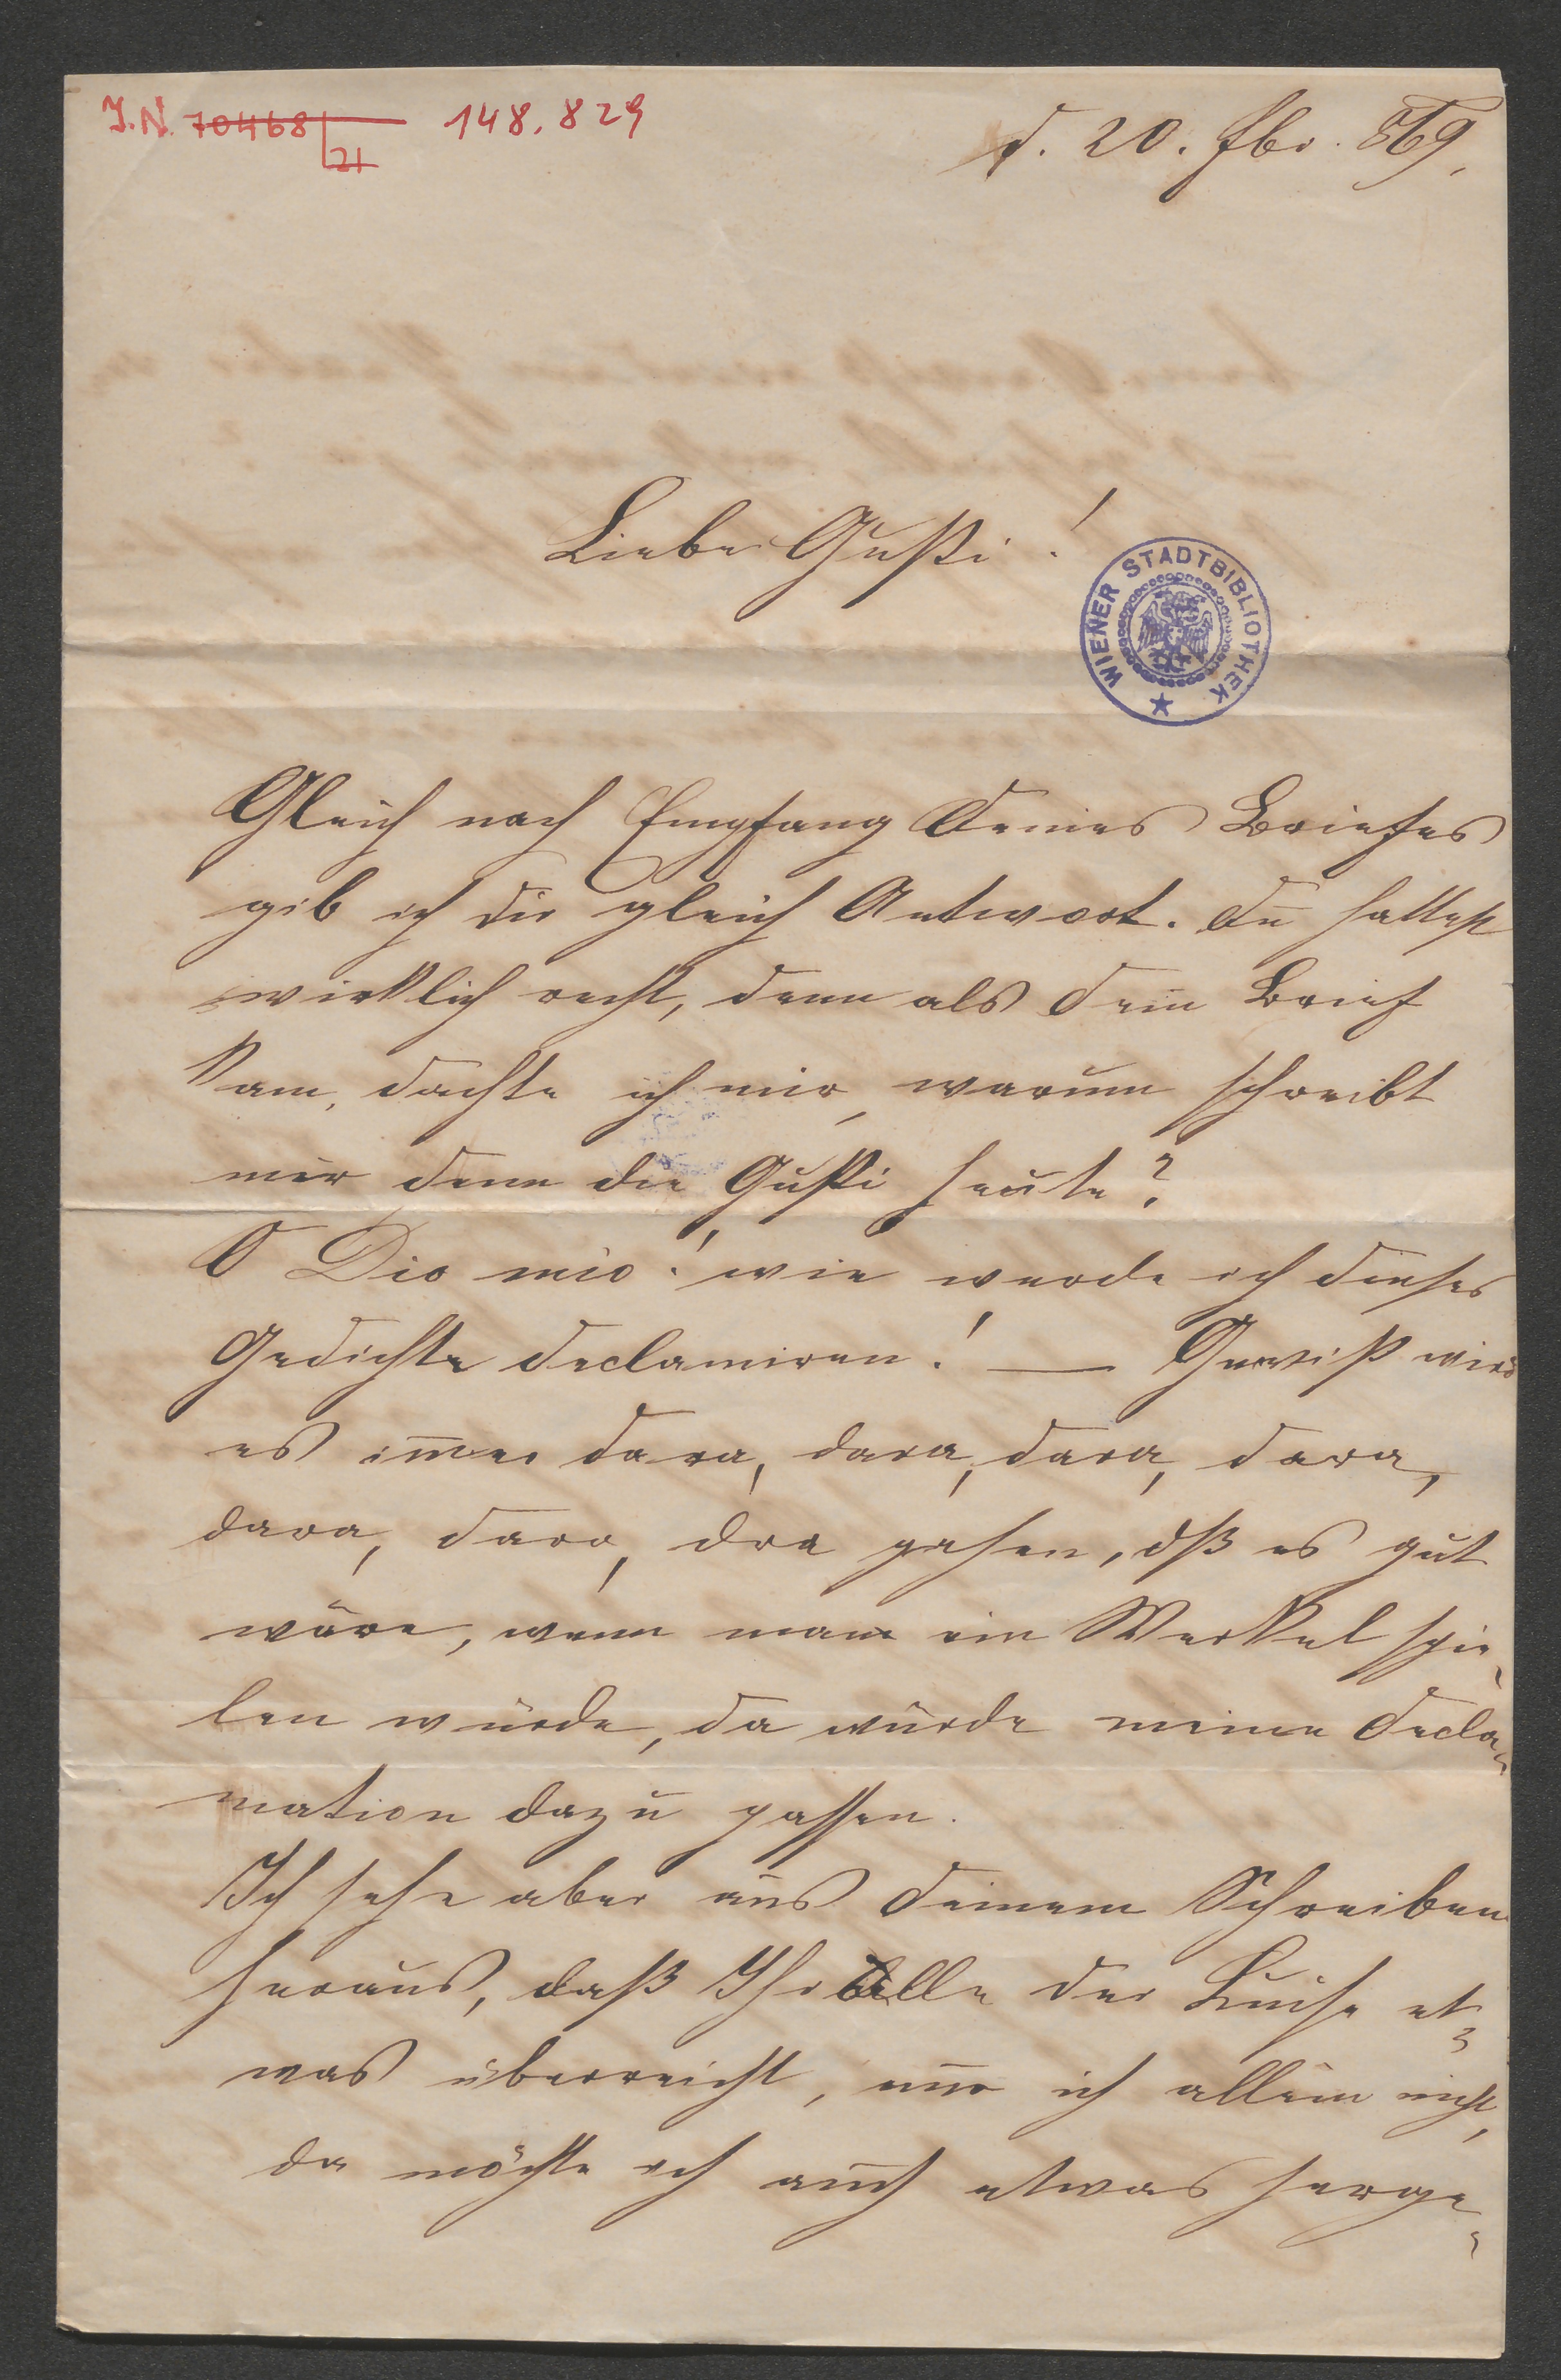 J.N. 70468
21
148.829
d. 20. Fbr. 869.
Liebe Gusti!
WIENER STADTBIBLIOTHEK
Gleich nach Empfang Deines Briefes
gib ich dir gleich Antwort. Du hattest
wirklich recht, denn als Dein Brief
kam, dachte ich mir, warum schreibt
mir denn die Gusti heute?
O Dio mio! wie werde ich dieses
Gedichte declamiren! — Gewiß wird
es im̅er dara, dara, dara, dara,
dara, dara, dra gehen, dß es gut
wäre, wenn man ein Werkel spie-
len würde, da würde meine Decla-
mation dazu passen.
Ich sehe aber aus Deinem Schreiben
heraus, daß Ihr Alle der Luise et-
was überreicht, nur ich allein nicht,
da möchte ich auch etwas herge-